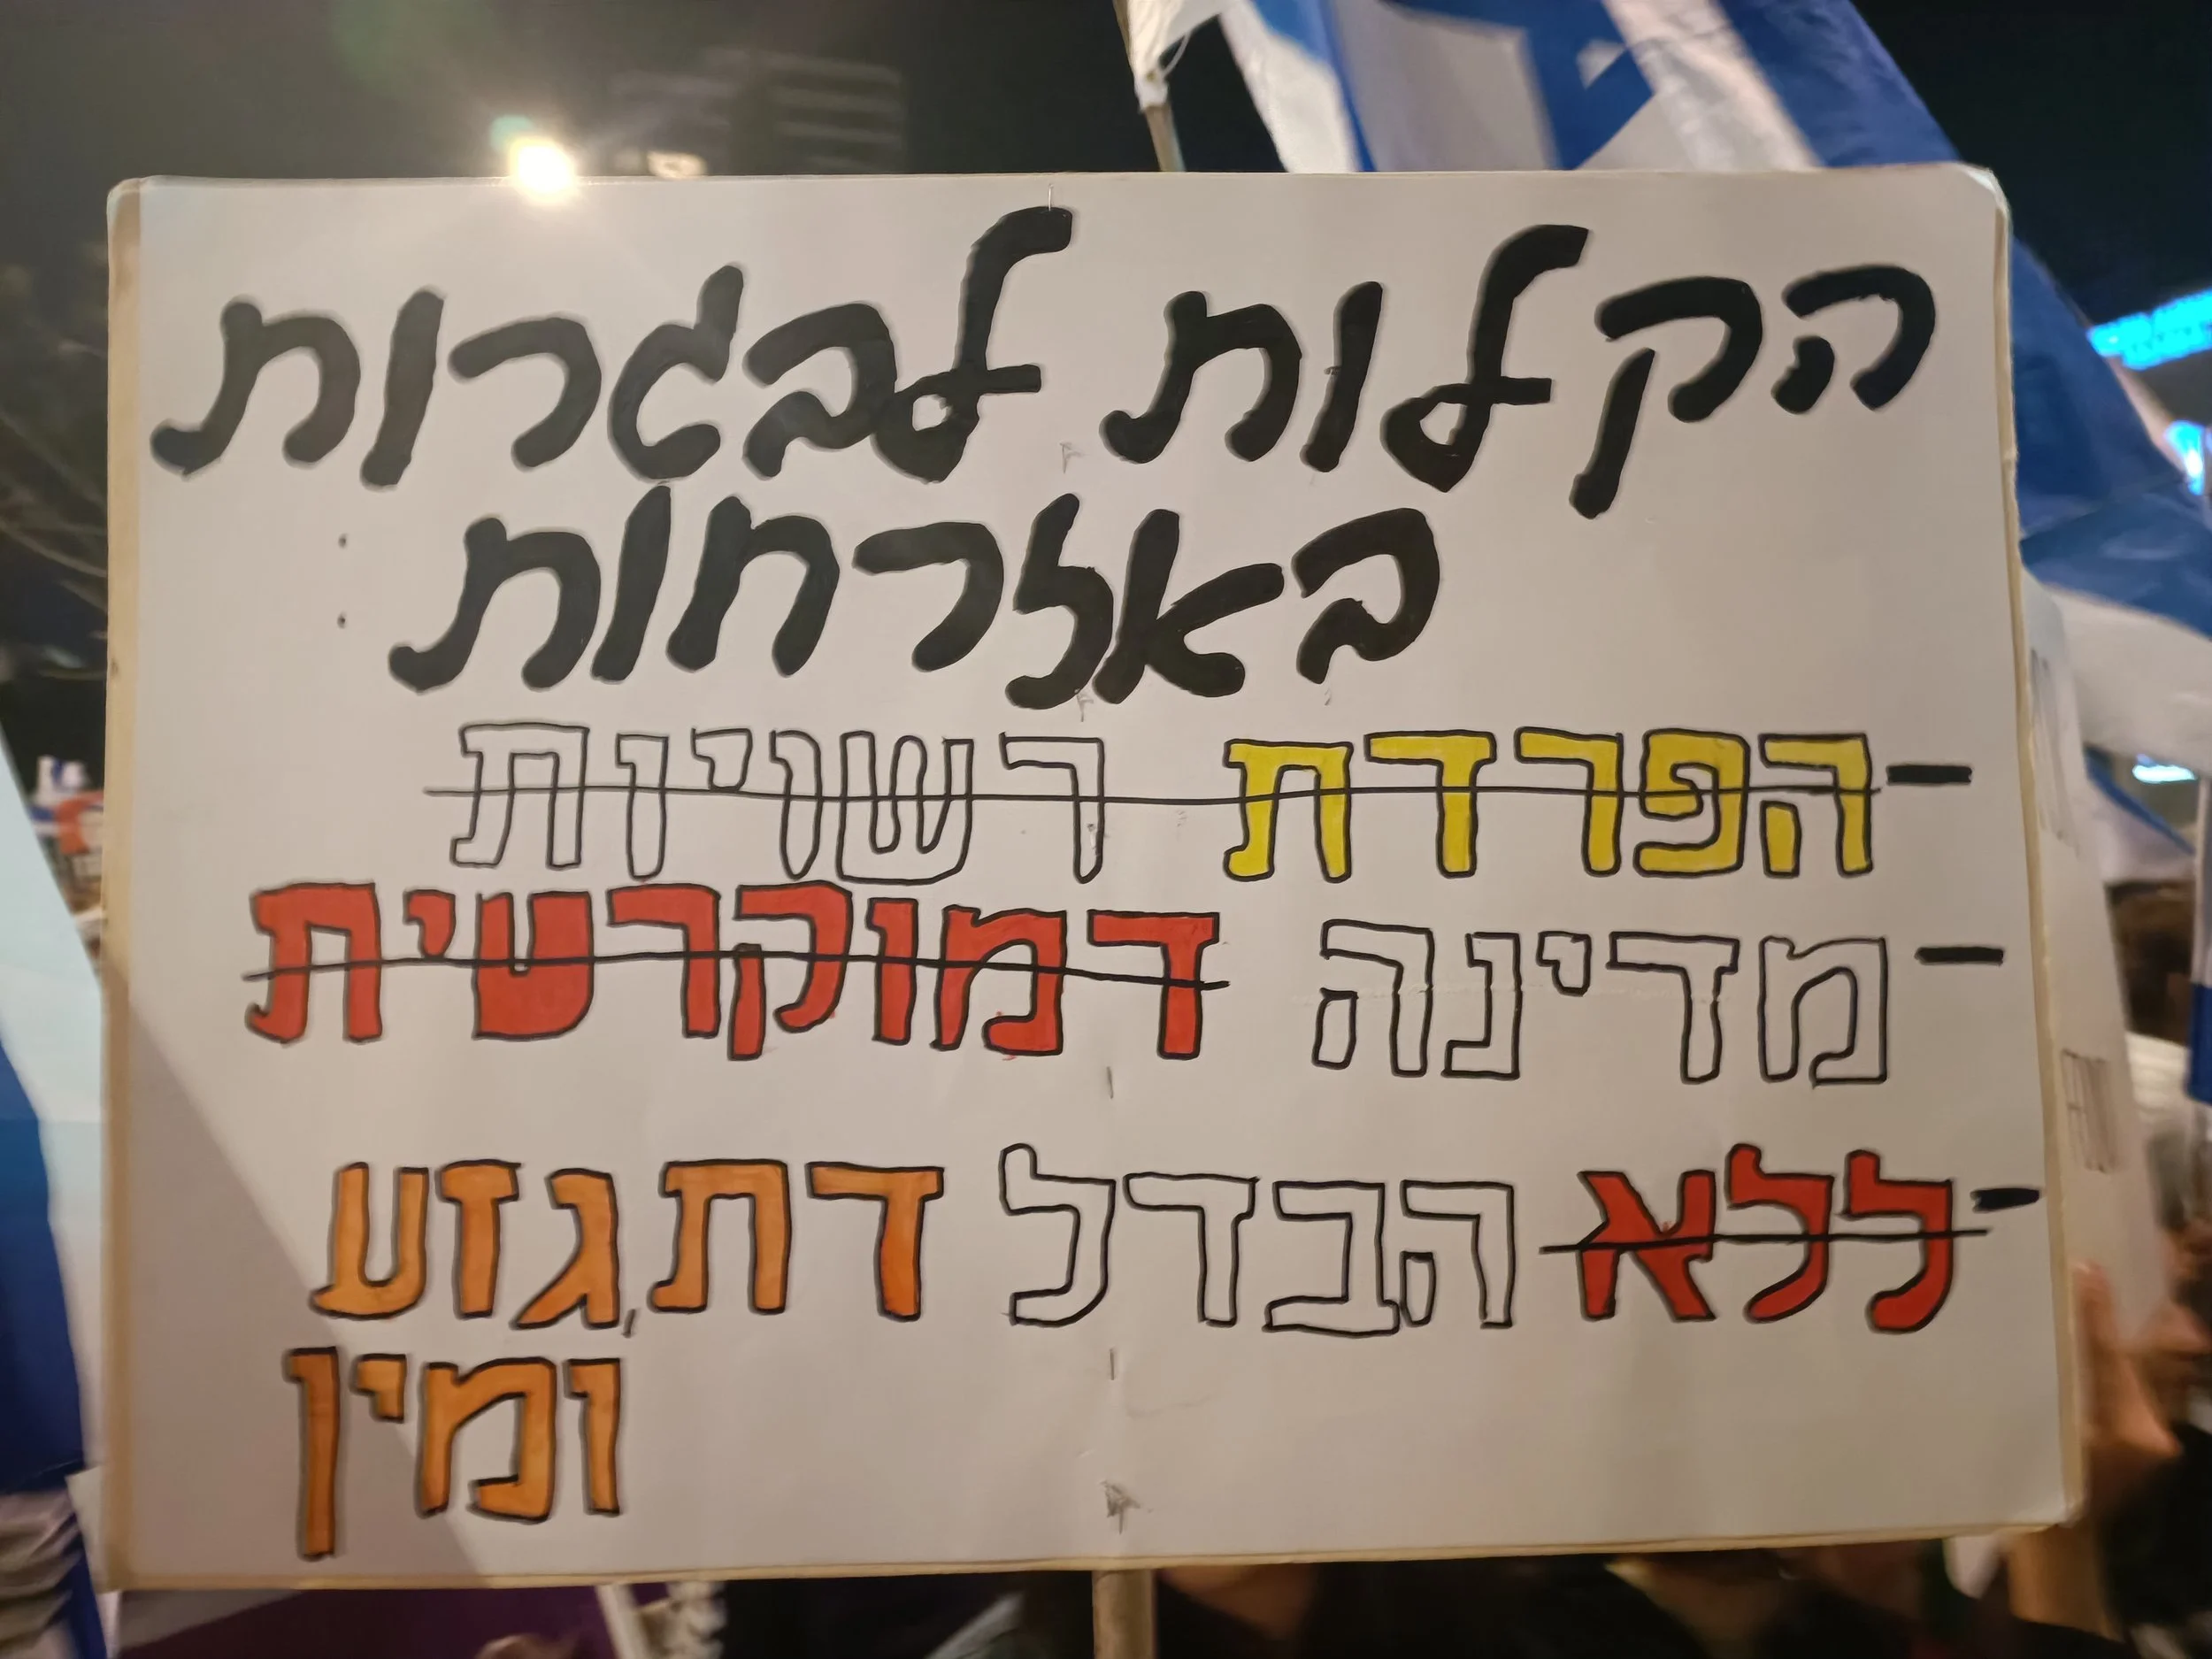 הקלות לבגרות
באזרחות:
- הפרדת רשויות
- מדינה דמוקרטית
- ללא הבדל דת, גזע
ומין